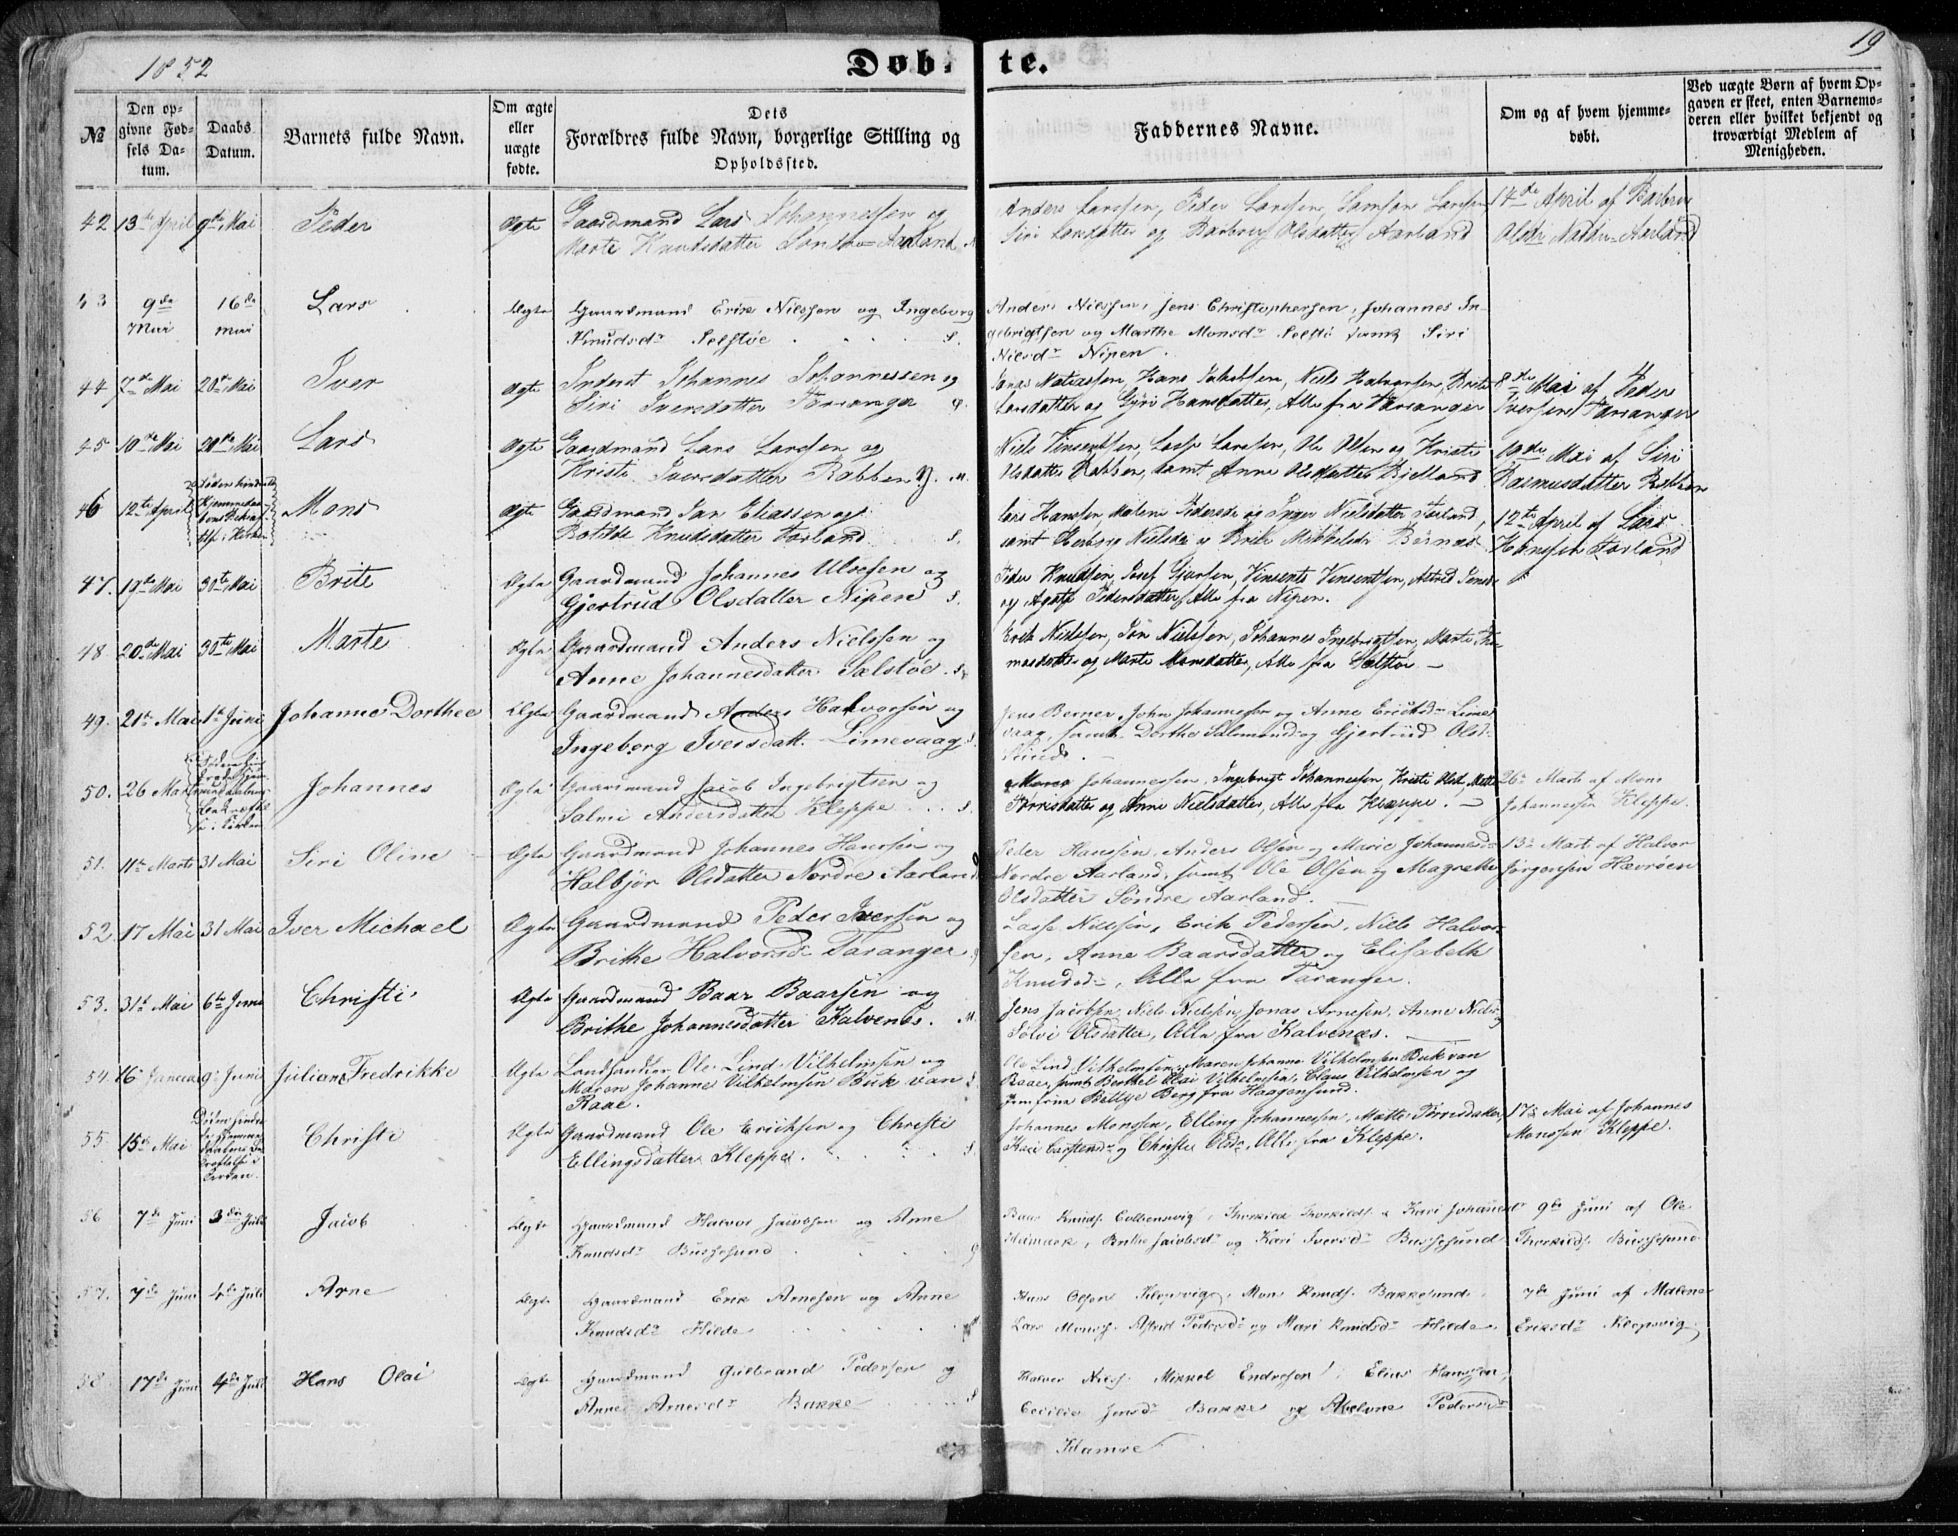 1852
Døb-
te.
19
№
Den op-
givne Fød-
sels Da-
tum.
Daabs
Datum.
Barnets fulde Navn.
Om ægte
eller
uægte
fødte.
Dets
Forældres fulde Navn, borgerlige Stilling og
Opholdssted.
Faddernes Navne.
Om og af hvem hjemme-
døbt.
Ved uægte Børn af hvem Op-
gaven er skeet, enten Barnemo-
deren eller hvilket bekjendt og
troværdigt Medlem af
Menigheden.
42 13de April 9de Mai Peder Ægte Gaardmand Lars Johannessen og
Marte Knudsdatter Aarland
Anders Larssen, Peder Larssen, Samson Larssen
Siri Larsdatter og Barbroe Olsdatter Aarland
14de April af Barbroe
Olsdr Aarland
43 9de Mai 16de Mai Lars Ægte Gaardmand Erik Nilssen og Ingeborg
Knudsdr Selstøe S.
Anders Nilssen, Jens Christophersen, Johannes In-
gebrigtsen og Marthe Monsdr Selstø samt Siri
Nilsdr Nipen.
44 7de Mai 20de Mai Iver Ægte Inderst Johannes Johannessen og
Siri Iversdatter Taranger
Jonas Matiassen, Hans Jakobsen, Niels Halvorsen, Brite
Larsdatter og Gjøri Hansdatter, Alle fra Taranger
8de Mai af Peder
Iversen Taranger
45 10de Mai 20de Mai Lars Ægte Gaardmand Lars Larssen og
Kristi Iversdatter Robben M.
Niels Vinsentsen, Lasse Larssen, Ole Olsen og Kristi
Olsdatter Robben, samt Anne Olsdatter Bjelland
10de Mai af Siri
Rasmusdatter Robben
46 12te April Mons Ægte Gaardmand Jan Eliassen og
Botilde Knudsdatter Forland S.
Lars Hanssen, Malene Pedersdr og Inger Nielsdatter Forland,
samt Herborg Nielsdr og Brite Mikkelsdr Bernæs
12te April af Lars
Hanssen Forland
47. 19de Mai 30te Mai Brite Ægte Gaardmand Johannes Ulvesen og
Gjertrud Olsdatter Nipen S.
Peder Knudsen, Josef Gjersen, Vinsents Vinsentsen, Astrid Jensd
og Agate Pedersdatter, Alle fra Nipen.
48 20de Mai 30te Mai Marte Ægte Gaardmand Anders Nielssen og
Anne Johannesdatter Salstøe S.
Erik Nielssen, Jon Nielssen, Johannes Ingebrigtsen, Marte Tho-
masdatter og Marte Monsdatter, Alle fra
49. 21de Mai 1st Juni Johanne Dorthea Ægte Gaardmand Anders Halvorsen og
Ingeborg Iversdatt. Limevaag S.
Jens Berner, John Johannessen og Anne Ericksdr Lime-
vaag, samt Dorthe Salomonsd og Gjertrud Olsd
Sund. —
50. 26 Marts Johannes Ægte Gaardmand Jacob Ingebrigtsen og
Salmi Andersdatter Kleppe S.
Mons Johannessen, Ingebrigt Johannessen, Kristi Olsd. Mette
Torrisdatter og Anne Nielsdatter, Alle fra Kleppe. —
26de Marts af Mons
Johannessen Kleppe.
51. 11te Marts 31 Mai Siri Oline Ægte Gaardmand Johannes Hanssen og
Halbjør Olsdatter Nordre Aarland
Peder Hanssen, Anders Olsen og Marie Johannesdr
Nordre Aarland, samt Ole Olsen og Magrethe
Olsdatter Søndre Aarland. —
13de Mart. af Halvor
Jørgensen Hævrøen
52. 17 Mai 31 Mai Iver Michael Ægte Gaardmand Peder Iversen og
Brithe Halvorsdr Taranger S
Lasse Nielsen, Erik Pedersen, Niels Halvor-
sen, Anne Baarsdatter og Elisabeth
Knudsdr, Alle fra Taranger.
53. 31t Mai 6te Juni Christi Ægte Gaardmand Baar Baarsen og
Brithe Johannesdatter Kalvenes. M.
Jens Jacobsen, Niels Nielsen, Jonas Arnesen, Anne Nielsd
Sølvi Olsdatter, Alle fra Kalvenæs.
54. 16 Januar 9de Juni Juliane Fredrikke Ægte Landhandler Ole Lind Vilhelmsen og
Maren Johanne Vilhelmsen Buk van
Raae. S
Ole Lind Vilhelmsen, Maren Johanne Vilhelmsen Buk van
Raae, samt Berthel Olai Vilhelmsen, Claus Vilhelmsen og
Jomfrue Bettye Berg fra Haagensund.
55. 15de Mai Christi Ægte Gaardmand Ole Erichsen og Christi
Ellingsdatter Kleppe. S
Johannes Monssen, Elling Johannessen, Matte Torrisdatter,
Kari Carstensdr og Christie Olsdr, Alle fra Kleppe.
17de Mai af Johannes
Monssen Kleppe.
56 7de Juni 3die Juli Jacob Ægte Gaardmand Halvor Jacobsen og Anne
Knudsdr Bussesund
Baar Knuds. , Thorkild Thorkilds. & Kari Johannesdr
, Brithe Jacobsdr og Kari Iversdr Bussesund
9de Juni af Ole
Thorkilds. Bussesund
57. 7de Juni 4de Juli Arne Ægte Gaardmand Erik Arnesen og Anne
Knudsdr Hilde
Hans Olsen Klepsvig, Mons Knuds. Bakkesund.
Lars Monss. Astrid Pedersdr og Mari Knudsdr Hilde
7de Juni af Malene
Eriksdr Klepsvig
58 17de Juni 4de Juli Hans Olai Ægte Gaardmand Gulbrand Pedersen og
Anne Arnesdr Bakke S
Halvor Nils. Mikkel Endresen, Elias Hanssen,
Cecilie Jensdr Bakke og Abelone Pedersdr
Hamre